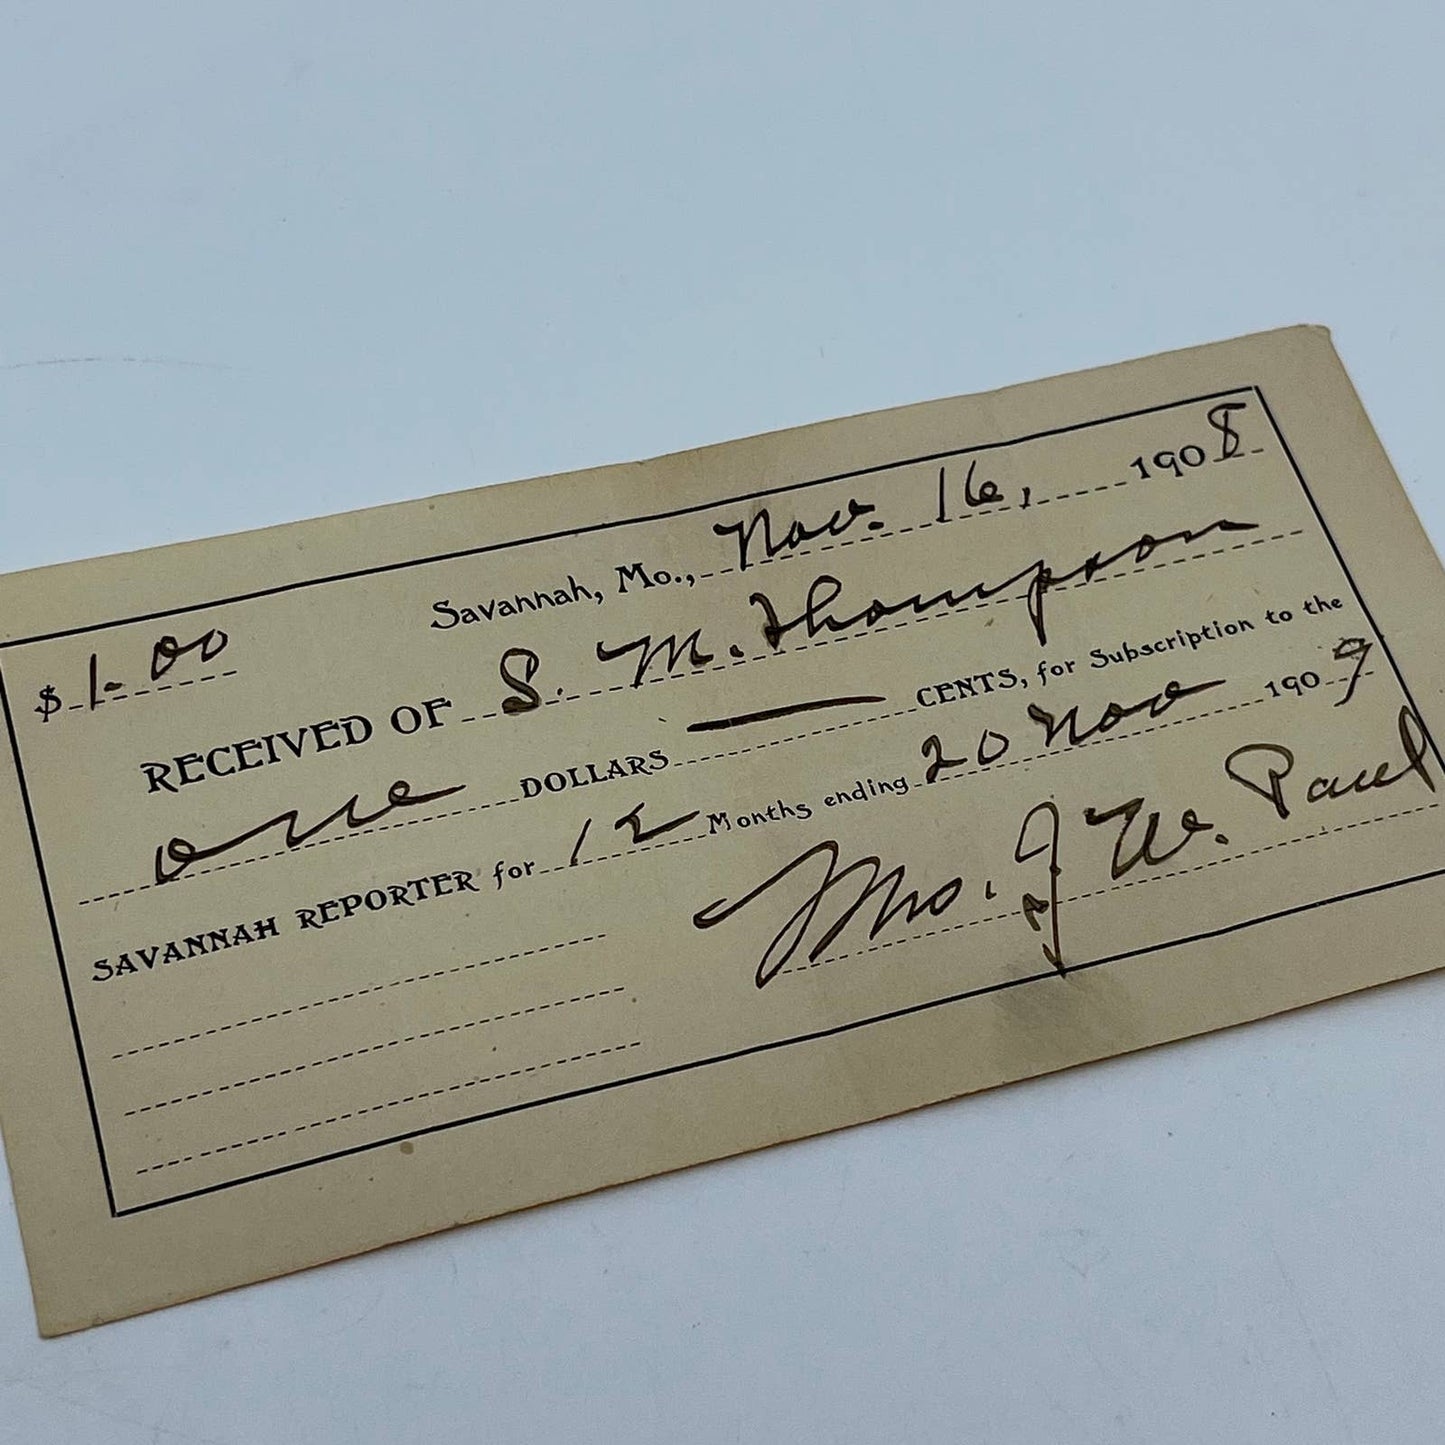 Savannah, Mo., Nov. 16, 1908
$ 1.00
RECEIVED OF S. M. Thompson
one DOLLARS — CENTS, for Subscription to the
SAVANNAH REPORTER for 12 Months ending 20 Nov 1909
J W. Paul